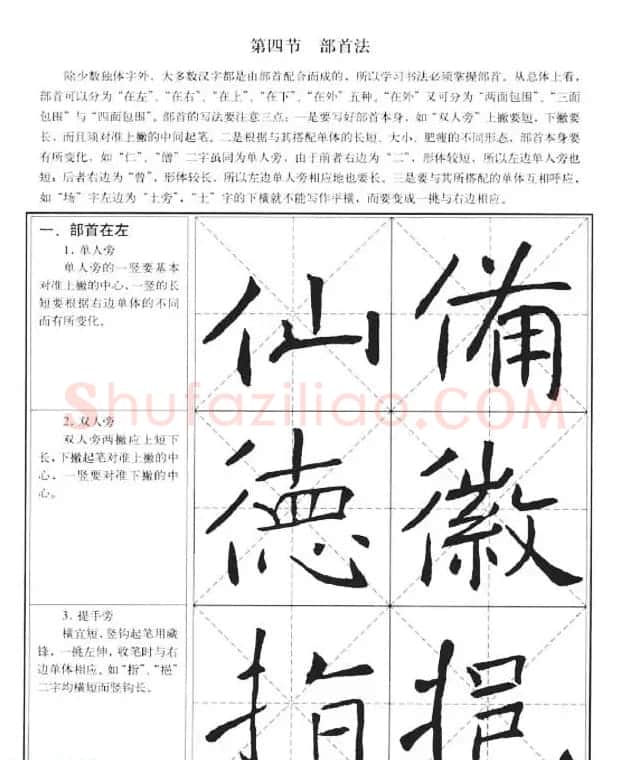 第四节 部首法
除少数独体字外、大多数汉字都是由部首配合而成的，所以学习书法必须掌握部首。从总体上看，
部首可以分为“在左”、“在右”、“在上”、“在下”、“在外”五种。“在外”又可分为“两面包围”、“三面
包围”与“四面包围”。部首的写法要注意三点：一是要写好部首本身，如“双人旁”上撇要短，下撇要
长，而且须对准上撇的中间起笔。二是根据与其搭配单体的长短、大小、肥瘦的不同形态，部首本身要
有所变化，如“仁”、“僧”二字虽同为单人旁，由于前者右边为“二”，形体较短，所以左边单人旁也
短；后者右边为“曾”，形体较长，所以左边单人旁相应地也要长。三是要与其所搭配的单体互相呼应，
如“场”字左边为“土旁”，“土”字的下横就不能写作平横，而要变成一挑与右边相应。
一．部首在左
1．单人旁
单人旁的一竖要基本
对准上撇的中心，一竖的长
短要根据右边单体的不同
而有所变化。
仙 備
Shufaziliao.COM
2．双人旁
双人旁两撇应上短下
长，下撇起笔对准上撇的中
心，一竖要对准下撇的中
心。
德 徽
3．提手旁
横宜短，竖钩起笔用藏
锋，一挑左伸，收笔时与右
边单体相应。如“指”、“挹”
二字均横短而竖钩长。
指 挹